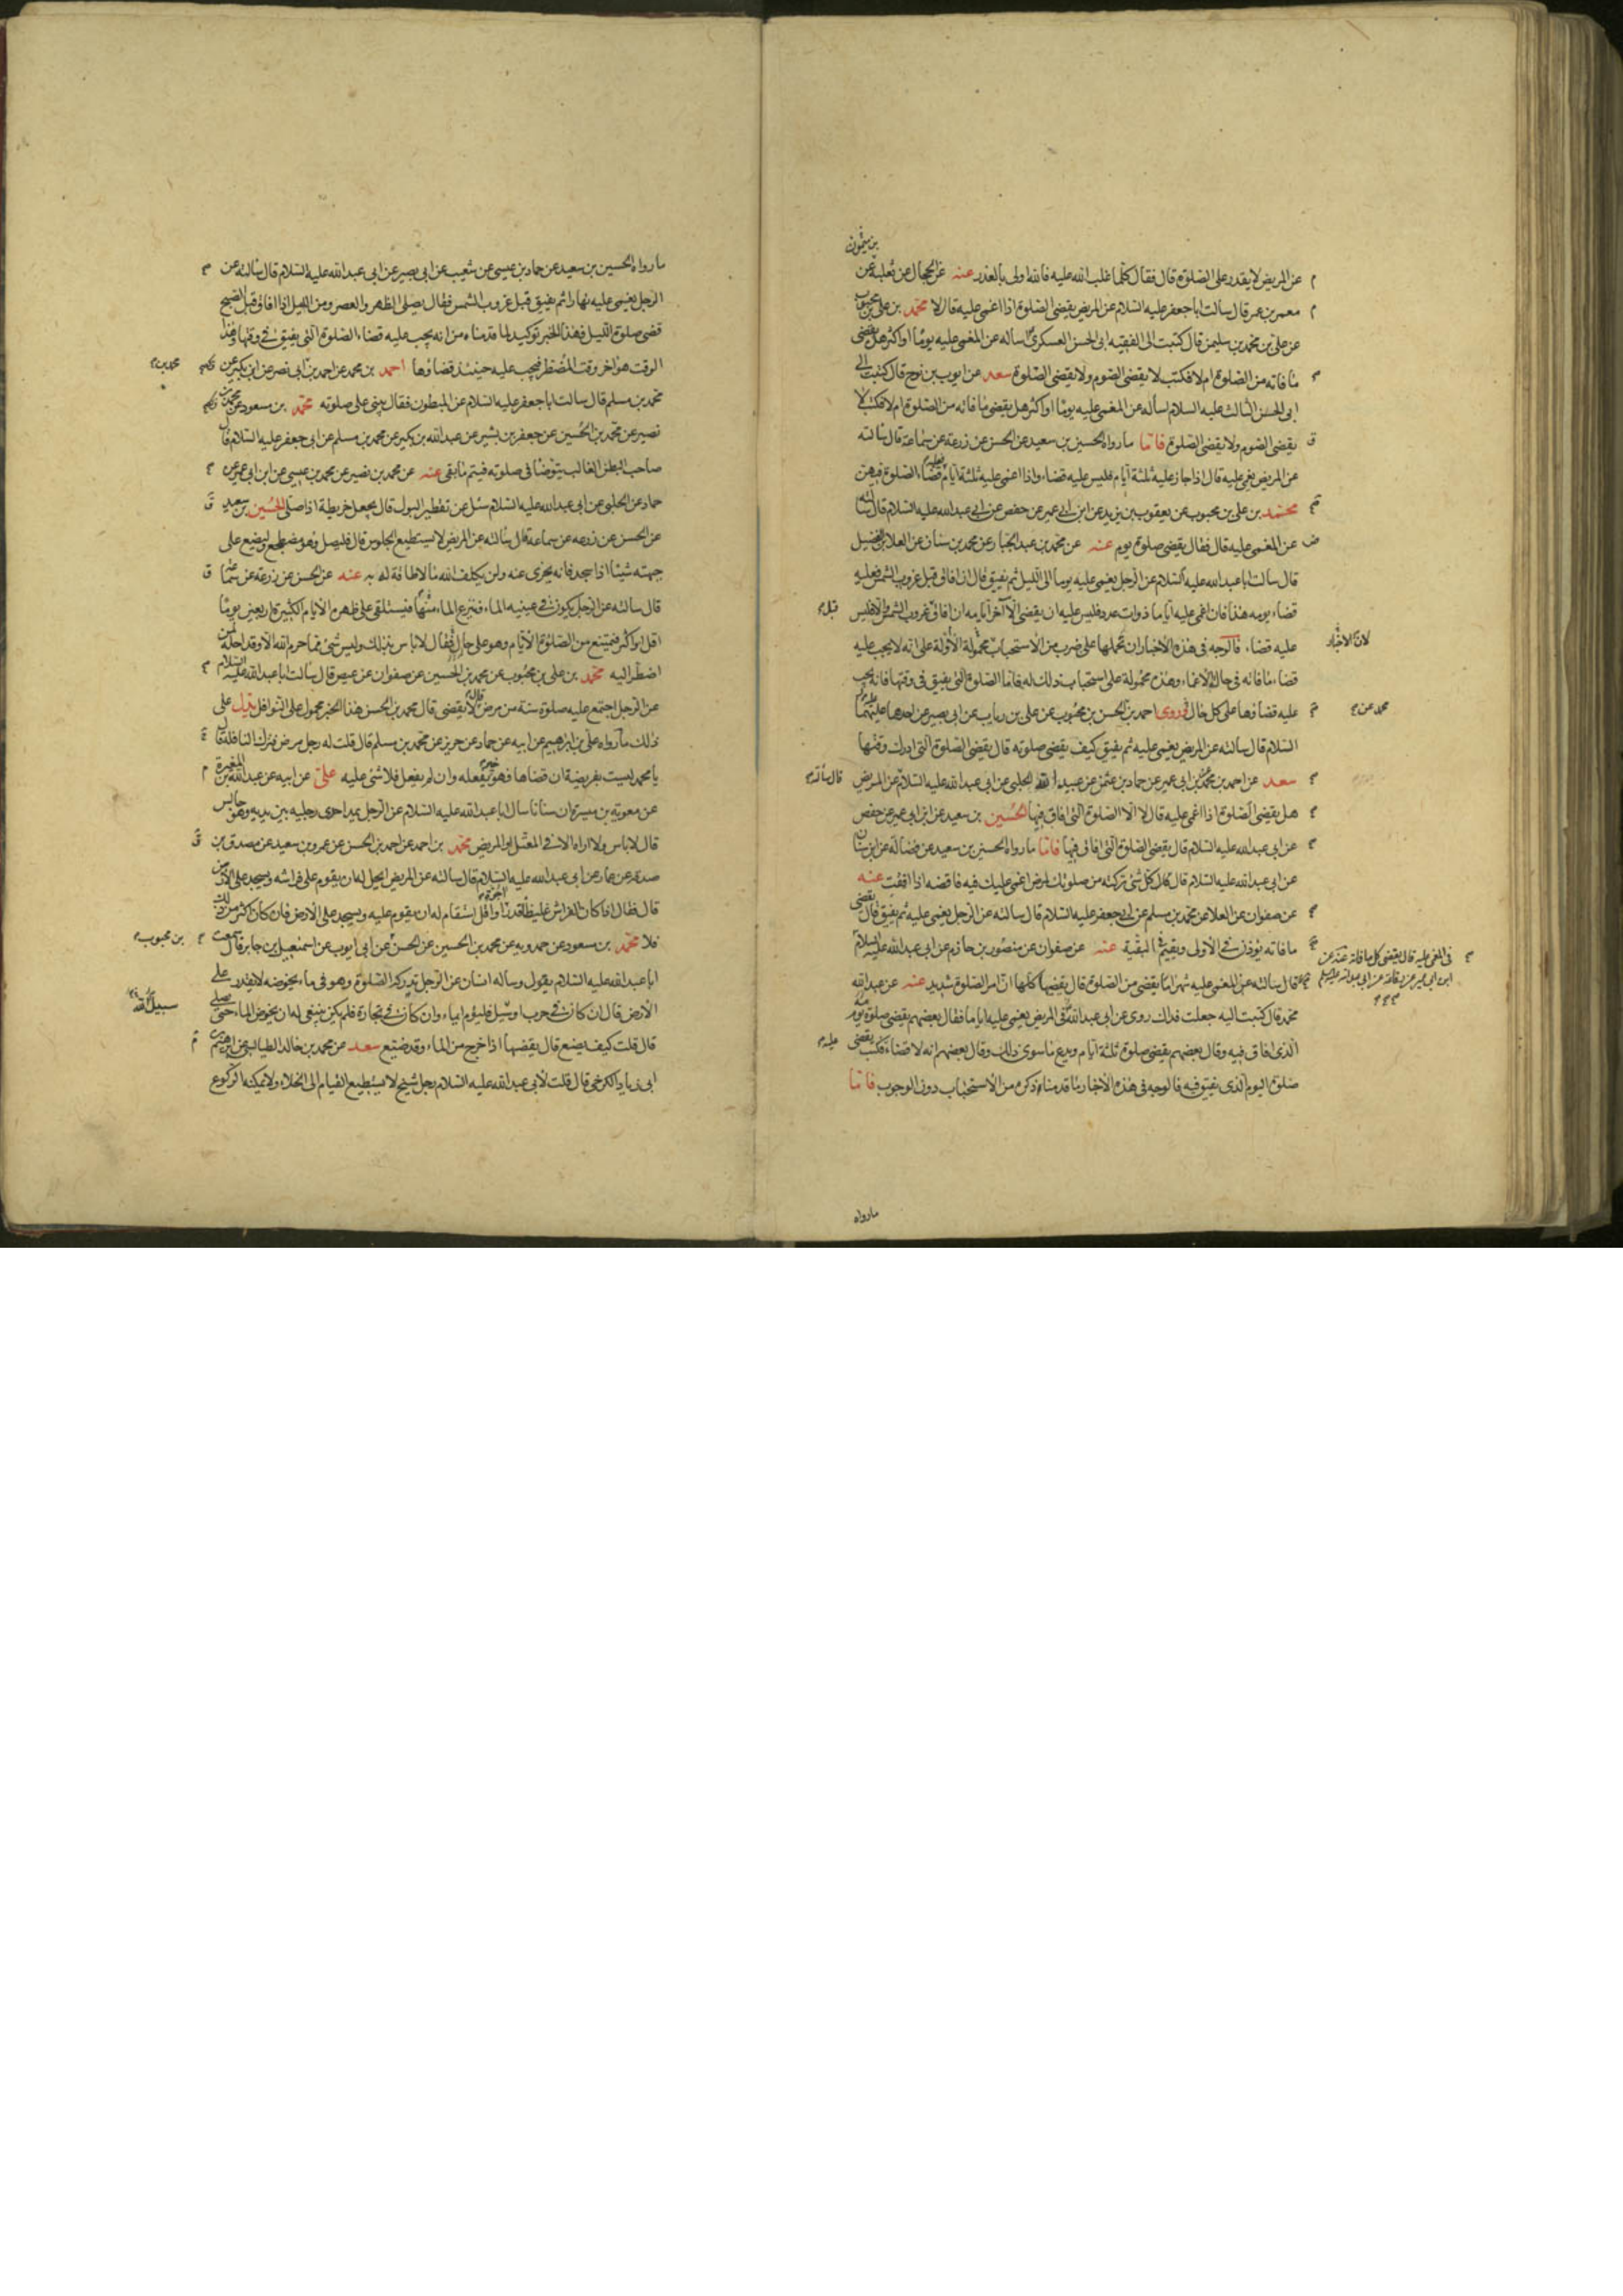 بن ميمون
عن المريض لا يقدر على الصلوة قال فقال كلما غلب الله عليه فالله اولى بالعذر عنه عن الحجال عن ثعلبة عن
معمر بن عمر قال سالت ابا جعفر عليه السلام عن المريض يقضى الصلوة اذا اغمى عليه قال لا محمد بن على بن محبوب
عن على بن محمد بن سليمن قال كتبت الى الفقيه ابى الحسن العسكرى اساله عن المغمى عليه يوما او اكثر هل يقضى
ما فاته من الصلوة ام لا فكتب لا يقضى الصوم ولا يقضى الصلوة سعد عن ايوب بن نوح قال كتبت الى
ابى الحسن الثالث عليه السلام اسأله عن المغمى عليه يوما او اكثر هل يقضى ما فاته من الصلوة ام لا فكتب لا
يقضى الصوم ولا يقضى الصلوة فاما ما رواه الحسين بن سعيد عن الحسن عن زرعة عن سماعة قال سالته
عن المريض يغمى عليه قال اذا جاز عليه ثلثة ايام فليس عليه قضاء واذا اغمى عليه ثلثة ايام فعليه قضاء الصلوة فيهن
محمد بن على بن محبوب عن يعقوب بن يزيد عن ابن ابى عمير عن حفص عن ابى عبد الله عليه السلام قال سالته
عن المغمى عليه قال فقال يقضى صلوة يوم عنه عن محمد بن عبد الجبار عن محمد بن سنان عن العلا بن الفضيل
قال سالت ابا عبد الله عليه السلام عن الرجل يغمى عليه يوما الى الليل ثم يفيق قال ان افاق قبل غروب الشمس فعليه
قضاء يومه هذا فان اغمى عليه اياما ذوات عدد فليس عليه ان يقضى الا آخر ايامه ان افاق قبل غروب الشمس والا فليس
عليه قضاء فالوجه فى هذه الاخبار ان نحملها على ضرب من الاستحباب لان الاخبار محمولة الاولة على انه لا يجب عليه
قضاء ما فاته فى حال الاغماء وهذه محمولة على استحباب ذلك له فاما الصلوة التى يفيق فى وقتها فانه يجب
عليه قضاؤها على كل حال فروى احمد بن محمد عن الحسن بن محبوب عن على بن رياب عن ابى بصير عن احدهما عليهما
السلام قال سالته عن المريض يغمى عليه ثم يفيق كيف يقضى صلوته قال يقضى الصلوة التى ادرك وقتها
سعد عن احمد بن محمد عن ابن ابى عمير عن حماد بن عثمن عن عبيد الله الحلبى عن ابى عبد الله عليه السلام قال سألته عن المريض
هل يقضى الصلوة اذا اغمى عليه قال لا الا الصلوة التى افاق فيها الحسين بن سعيد عن ابن ابى عمير عن حفص
عن ابى عبد الله عليه السلام قال يقضى الصلوة التى افاق فيها فاما ما رواه الحسين بن سعيد عن فضالة عن ابن سنان
عن ابى عبد الله عليه السلام قال كل شئ تركته من صلوتك لمرض اغمى عليك فيه فاقضه اذا افقت عنه
عن صفوان عن العلا عن محمد بن مسلم عن ابى جعفر عليه السلام قال سالته عن الرجل يغمى عليه ثم يفيق قال يقضى
ما فاته يؤذن فى الاولى ويقيم فى البقية عنه عن صفوان عن منصور بن حازم عن ابى عبد الله عليه السلام
فى المغمى عليه قال يقضى كل ما فاته عنه عن
ابن ابى عمير عن رفاعة عن ابى عبد الله عليه السلم
قال سالته عن المغمى عليه شهرا ما يقضى من الصلوة قال يقضيها كلها ان امر الصلوة شديد عنه عن عبد الله
محمد قال كتبت اليه جعلت فداك روى عن ابى عبد الله فى المريض يغمى عليه اياما فقال بعضهم يقضى صلوة يومه
الذى افاق فيه وقال بعضهم يقضى صلوة ثلثة ايام ويدع ما سوى ذلك وقال بعضهم انه لا قضاء عليه فكتب يقضى
صلوة اليوم الذى يفيق فيه فالوجه فى هذه الاخبار ما قدمنا ذكره من الاستحباب دون الوجوب فاما
ما رواه
ما رواه الحسين بن سعيد عن حماد بن عيسى عن شعيب عن ابى بصير عن ابى عبد الله عليه السلام قال سالته عن
الرجل يغمى عليه نهارا ثم يفيق قبل غروب الشمس فقال يصلى الظهر والعصر ومن الليل اذا افاق قبل الصبح
قضى صلوة الليل فهذا الخبر توكيد لما قدمناه من انه يجب عليه قضاء الصلوة التى يفيق فى وقتها وهذا
الوقت هو اخر وقت المضطر فيجب عليه حينئذ قضاؤها احمد بن محمد عن احمد بن محمد بن ابى نصر عن ابن بكير عن
محمد بن مسلم قال سالت ابا جعفر عليه السلام عن المبطون فقال يبنى على صلوته محمد بن مسعود عن محمد بن
نصير عن محمد بن الحسين عن جعفر بن بشير عن عبد الله بن بكير عن محمد بن مسلم عن ابى جعفر عليه السلام قال
صاحب البطن الغالب يتوضا فى صلوته فيتم ما بقى عنه عن محمد بن نصير عن محمد بن عيسى عن ابن ابى عمير عن
حماد عن الحلبى عن ابى عبد الله عليه السلام سئل عن تقطير البول قال يجعل خريطة اذا صلى الحسين بن سعيد
عن الحسن عن زرعه عن سماعة قال سالته عن المريض لا يستطيع الجلوس قال فليصل وهو مضطجع وليضع على
جبهته شيئا اذا سجد فانه يجزى عنه ولن يكلف الله ما لا طاقة له به عنه عن الحسن عن زرعة عن سماعة
قال سالته عن الرجل يكون فى عينيه الماء فينتزع الماء منها فيستلقى على ظهره الايام الكثيرة اربعين يوما
اقل او اكثر فيمتنع من الصلوة الايام وهو على حال فقال لا باس بذلك وليس شئ مما حرم الله الا وقد احله لمن
اضطر اليه محمد بن على بن محبوب عن محمد بن الحسين عن صفوان عن عيص قال سالت ابا عبد الله عليه السلام
عن الرجل اجتمع عليه صلوة سنة من مرض قال لا يقضى قال محمد بن الحسن هذا الخبر محمول على النوافل يدل على
ذلك ما رواه على بن ابرهيم عن ابيه عن حماد عن حريز عن محمد بن مسلم قال قلت له رجل مرض فترك النافلة قال
يا محمد ليست بفريضة ان قضاها فهو خير يفعله وان لم يفعل فلا شئ عليه على عن ابيه عن عبد الله بن المغيرة
عن معوية بن ميسرة ان سنانا سال ابا عبد الله عليه السلام عن الرجل يمد احدى رجليه بين يديه وهو جالس
قال لا باس ولا اراه الا فى المعتل او المريض محمد بن احمد عن احمد بن الحسن عن عمرو بن سعيد عن مصدق بن
صدقه عن عمار عن ابى عبد الله عليه السلام قال سالته عن المريض ايحل له ان يقوم على فراشه ويسجد على الارض
قال فقال اذا كان الفراش غليظا قدر اجرة او اقل استقام له ان يقوم عليه ويسجد على الارض فان كان اكثر من ذلك
فلا محمد بن مسعود عن حمدويه عن محمد بن الحسين عن الحسن بن محبوب عن ابى ايوب عن اسمعيل بن جابر قال سمعت
ابا عبد الله عليه السلام يقول وساله انسان عن الرجل تدركه الصلوة وهو فى ماء يخوضه لا يقدر على
الارض قال ان كان فى حرب او سبيل الله فليؤم ايماء وان كان فى تجارة فلم يكن ينبغى له ان يخوض الماء حتى يصلى
قال قلت كيف يصنع قال يقضيها اذا خرج من الماء وقد ضيع سعد عن محمد بن خالد الطيالسى عن ابرهيم بن
ابى زياد الكرخى قال قلت لابى عبد الله عليه السلام رجل شيخ لا يستطيع القيام الى الخلاء ولا يمكنه الركوع